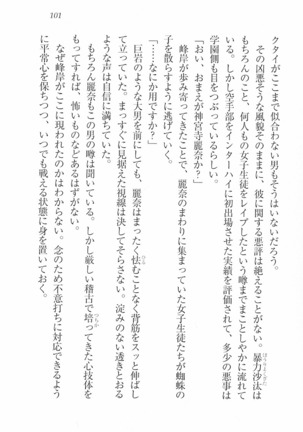 101
クタイがここまで似合わない男もそはいないだろう。
その凶悪そうな風貌そのままに、彼に関する悪評は絶えることがない。暴力沙汰は
もちろんのこと、何人もの女子生徒をレイプしたという噂までまことしやかに流れて
いる。しかし空手部をインターハイに初出場させた実績を評価されて、多少の悪事は
学園側も目をつぶっているらしい。
「おい、おまえが神宮寺麗奈か？」
峰岸が歩み寄ってきたことで、麗奈のまわりに集まっていた女子生徒たちが蜘蛛の
子を散らすように逃げていく。
「……なにか用ですか？」
巨岩のような大男を前にしても、麗奈はまったく怯むことなく背筋をスッと伸ばし
て立っていた。まっすぐに見据えた視線は決してそらさない。淀みのない透きとおる
ような声は自信に満ちていた。
もちろん麗奈もこの男の噂は聞いている。しかし厳しい稽古で培ってきた心技体を
もってすれば、怖いものなどあるはずがない。
なぜ峰岸がここに現われたのかはわからない。念のため不意打ちに対応できるよう
に平常心を保ちつつ、いつでも戦える状態に身を置いておく。